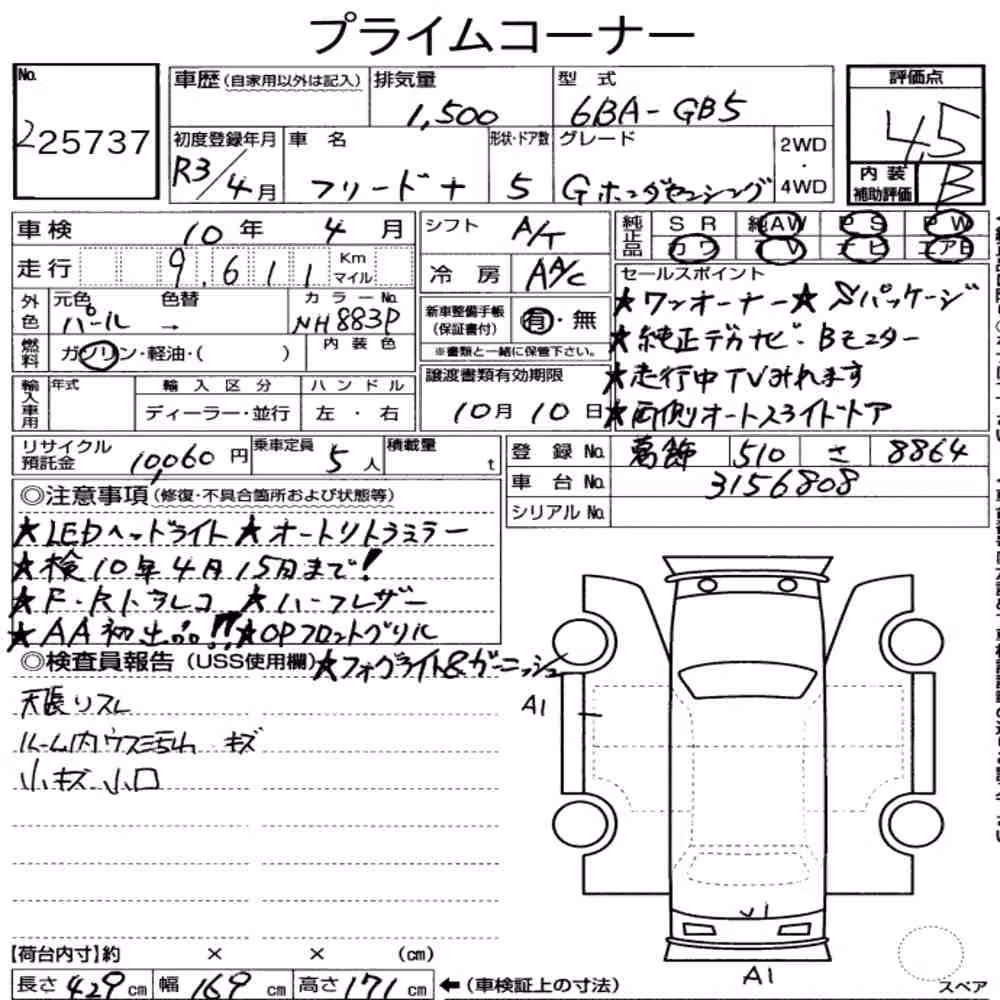 プライムコーナー
No. 225737
車歴 (自家用以外は記入) 排気量 1,500 型式 6BA-GB5
初度登録年月 R3/4月 車名 フリード+ 形状・ドア数 5 グレード Gホンダセンシング 2WD・4WD
評価点 4.5
内装補助評価 B
車検 10年 4月
走行 9,611 Km マイル
外色 元色 パール 色替 → カラーNo. NH883P
燃料 ガソリン・軽油・( ) 内装色
輸入車用 年式 輸入区分 ディーラー・並行 ハンドル 左・右
シフト A/T
冷房 AAC
新車整備手帳(保証書付) 有・無
※書類と一緒に保管下さい。
譲渡書類有効期限
10月10日
純正品 SR 純AW PS PW
カワ TV ナビ エアB
セールスポイント
★ワンオーナー★ Sパッケージ
★純正デカナビ・Bモニター
★走行中TVみれます
★両側オートスライドドア
リサイクル預託金 10,060円 乗車定員 5人 積載量 t
登録No. 葛飾 510 さ 8864
車台No. 3156808
シリアルNo.
◎注意事項(修復・不具合箇所および状態等)
★LEDヘッドライト★オートリトラミラー
★検10年4月15日まで!
★F・Rドラレコ ★ハーフレザー
★AA初出品!!★OPフロントグリル
★フォグライト&ガーニッシュ
◎検査員報告(USS使用欄)
天張リスレ
ルーム内ウス汚れ キズ
小キズ小凹
A1
U1
A1
【荷台内寸】約 × × (cm)
長さ429cm 幅169cm 高さ171cm ←(車検証上の寸法)
スペア